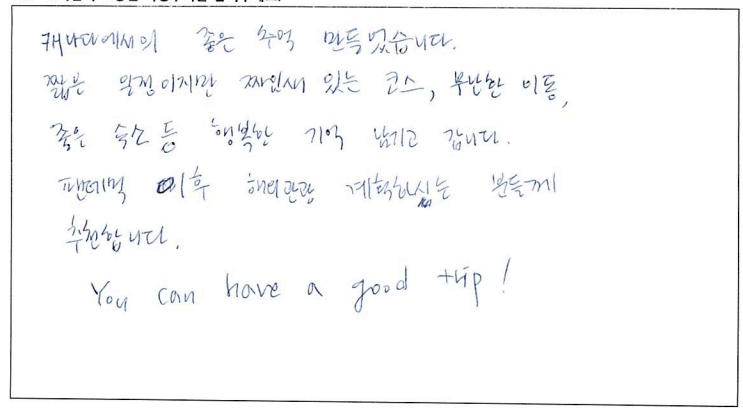 캐나다에서의 좋은 추억 만들었습니다.
짧은 일정이지만 짜임새 있는 코스, 무난한 이동,
좋은 숙소 등 행복한 기억 남기고 갑니다.
팬데믹 이후 해외관광 계획하시는 분들께
추천합니다.
You can have a good trip!